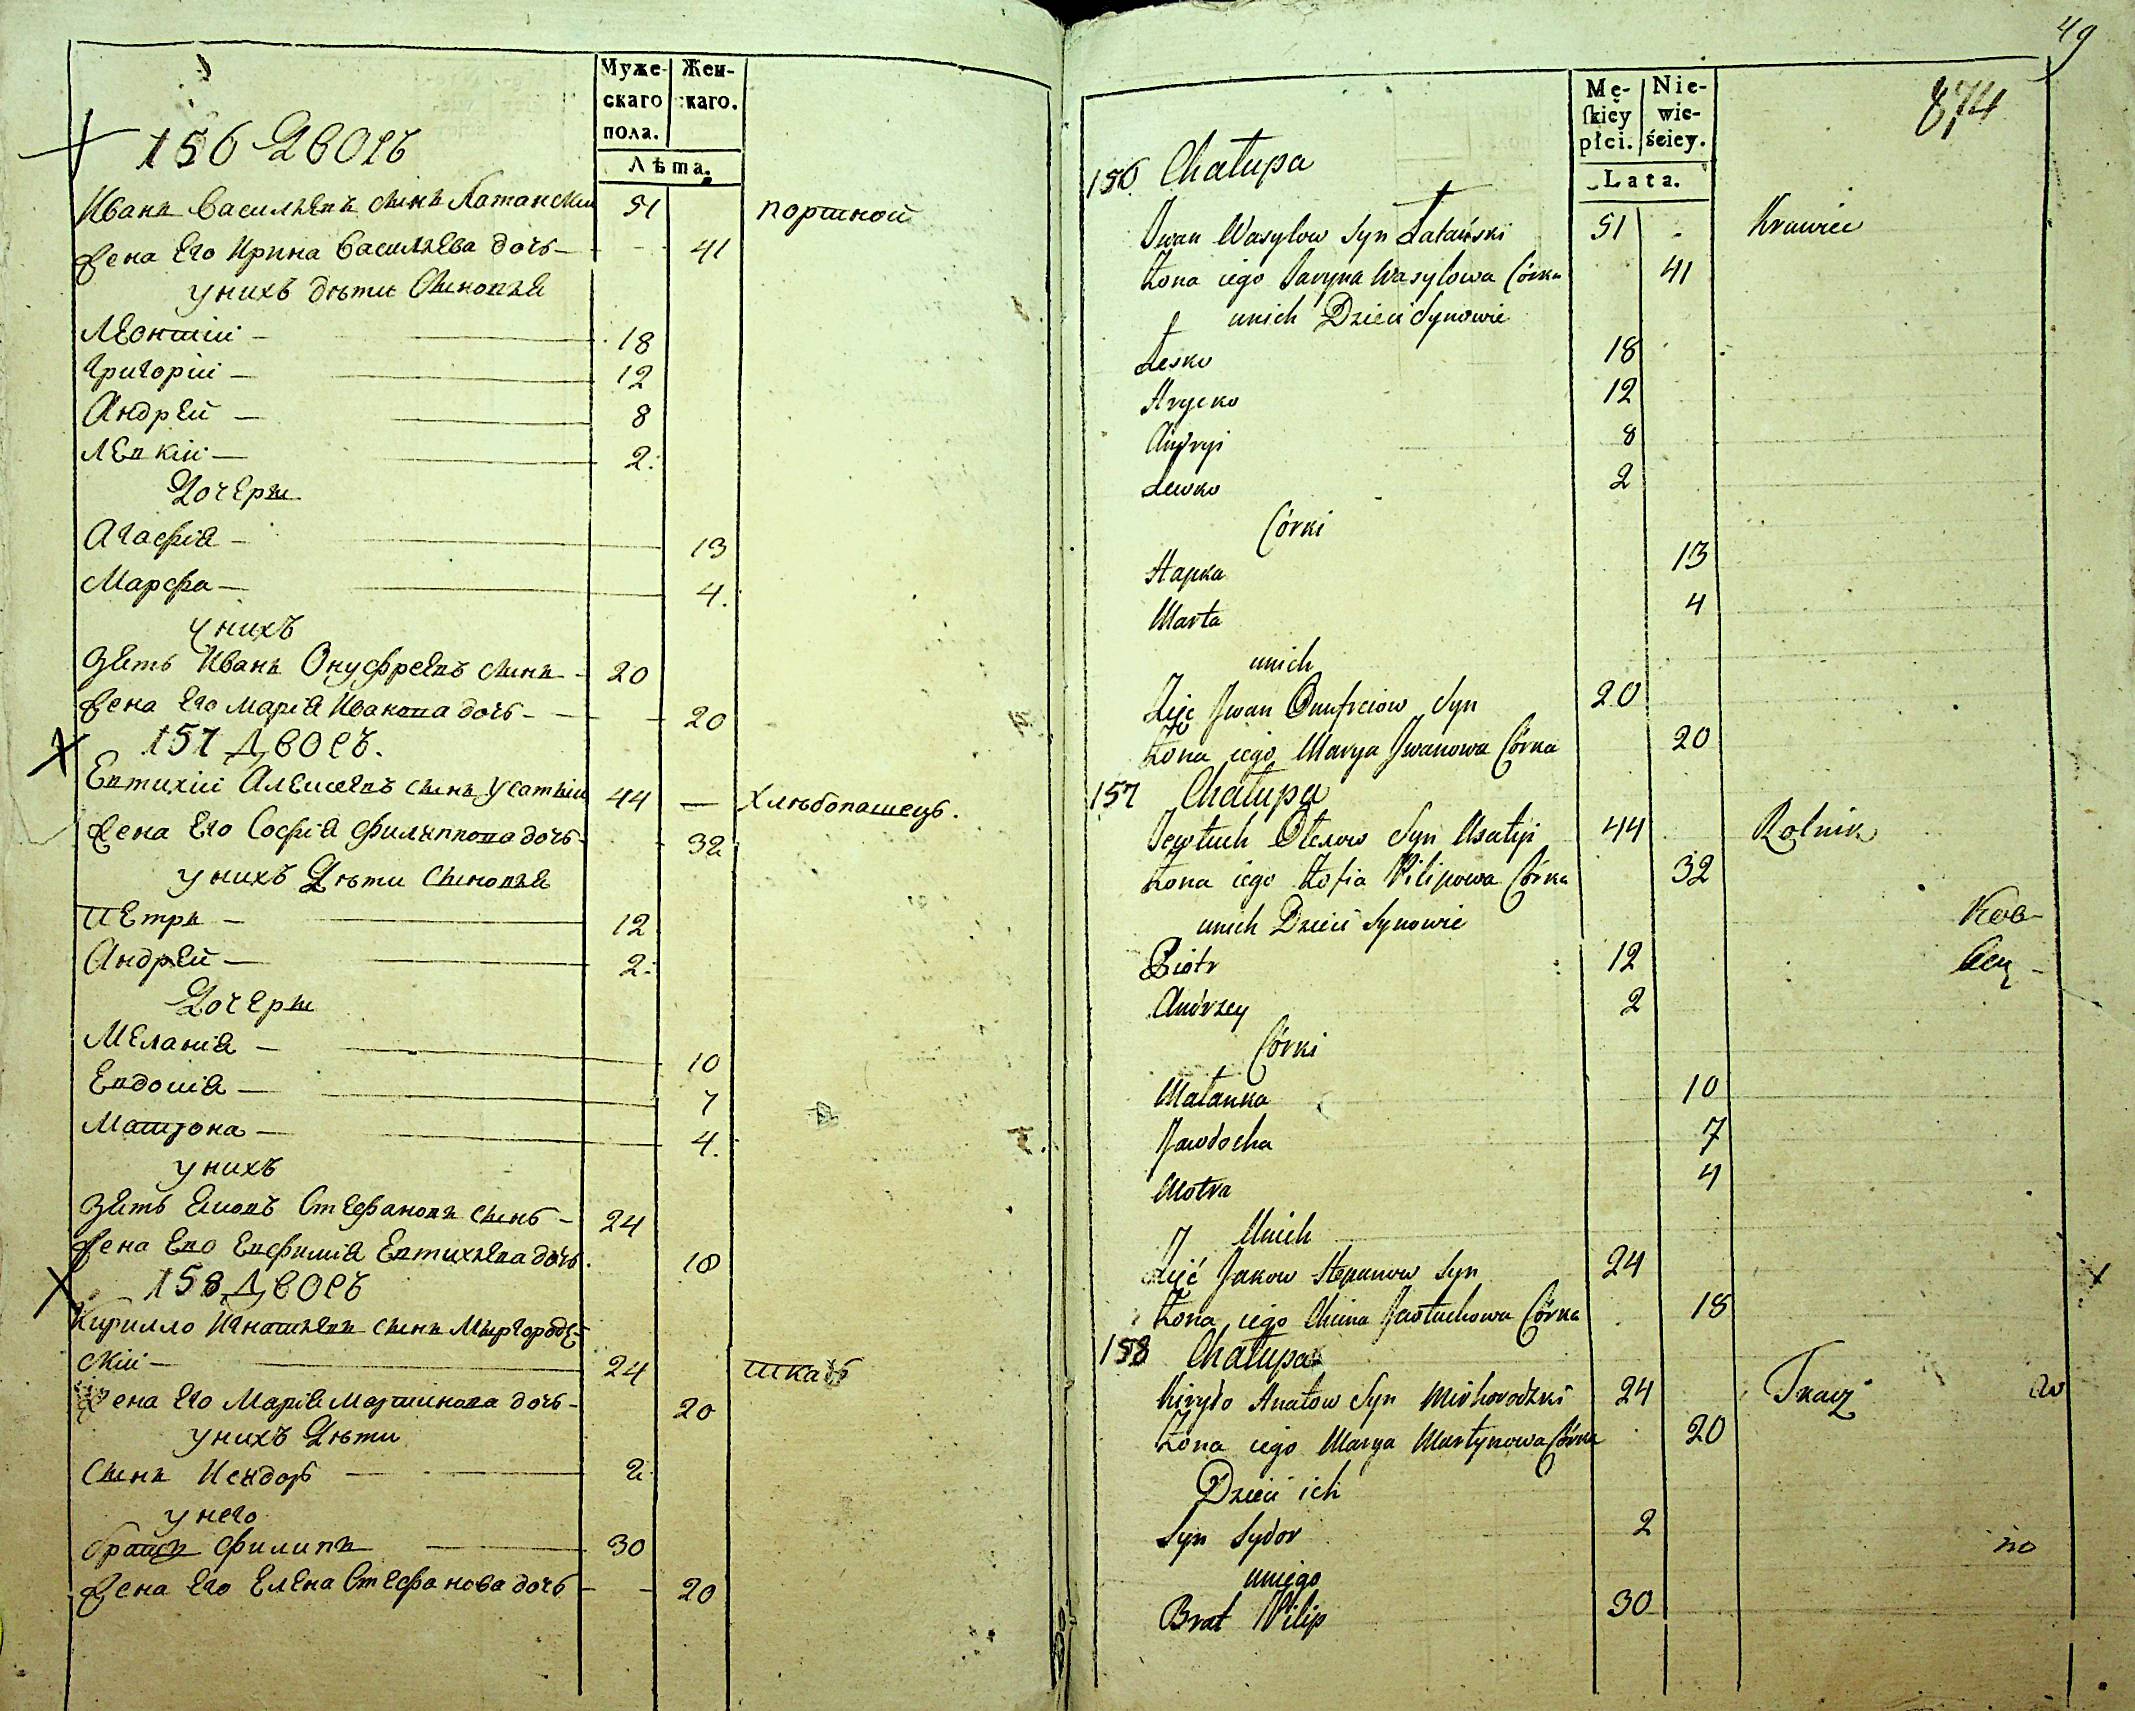 Муже-
скаго
пола.
Жен-
скаго.
Лѣта.
156 Дворъ
Иванъ Васильевъ сынъ Латанскій 51 портной
Жена Его Ирина Васильева дочь 41
у нихъ дѣти Сыновья
Леонтій 18
Григорій 12
Андрей 8
Левкій 2
Дочери
Агафія 13
Марфа 4
у нихъ
Зять Иванъ Онуфреевъ сынъ 20
Жена Его Марія Иванова дочь 20
157 Дворъ.
Евтихій Алексѣевъ сынъ Усатый 44 хлѣбопашецъ.
Жена Его Софія Филиппова дочь 32
у нихъ Дѣти Сыновья
Петръ 12
Андрей 2
Дочери
Меланія 10
Евдокія 7
Матрона 4
у нихъ
Зять Стефановъ сынъ 24
Жена Его Евфимія Евтихіева дочь 18
158 Дворъ
Кирилло Игнатьевъ сынъ Миргород-
скій 24 ткачь
Жена Его Марія Мартинова дочь 20
у нихъ Дѣти
Сынъ Исидоръ 2
у него
братъ Филипъ 30
Жена Его Елена Стефанова дочь 20
49
874
Mę-
ſkiey
płci.
Nie-
wie-
ściey.
Lata.
156 Chałupa
Jwan Wasylow Syn Łatański 51 Krawiec
Żona iego Jaryna Wasylowa Córka 41
unich Dzieci Synowie
Łesko 18
Hrycko 12
Andryi 8
Lewko 2
Córki
Hapka 13
Marta 4
unich
Zięć Jwan Onufreiow Syn 20
Żona iego Marya Jwanowa Córka 20
157 Chałupa
Jewtuch Olexow Syn Usatyi 44 Rolnik
Żona iego Zofia Pilipowa Córka 32
unich Dzieci Synowie
Piotr 12
Andrzey 2
Córki
Małanka 10
Jawdocha 7
Motra 4
Unich
Zięć Jakow Stepanow Syn 24
Żona iego Chima Jawtuchowa Córka 18
158 Chałupa
Kiryło Hnatow Syn Mirhorodzki 24 Tkacz
Żona iego Marya Martynowa Córka 20
Dzieci ich
Syn Sydor 2
uniego
Brat Pilip 30